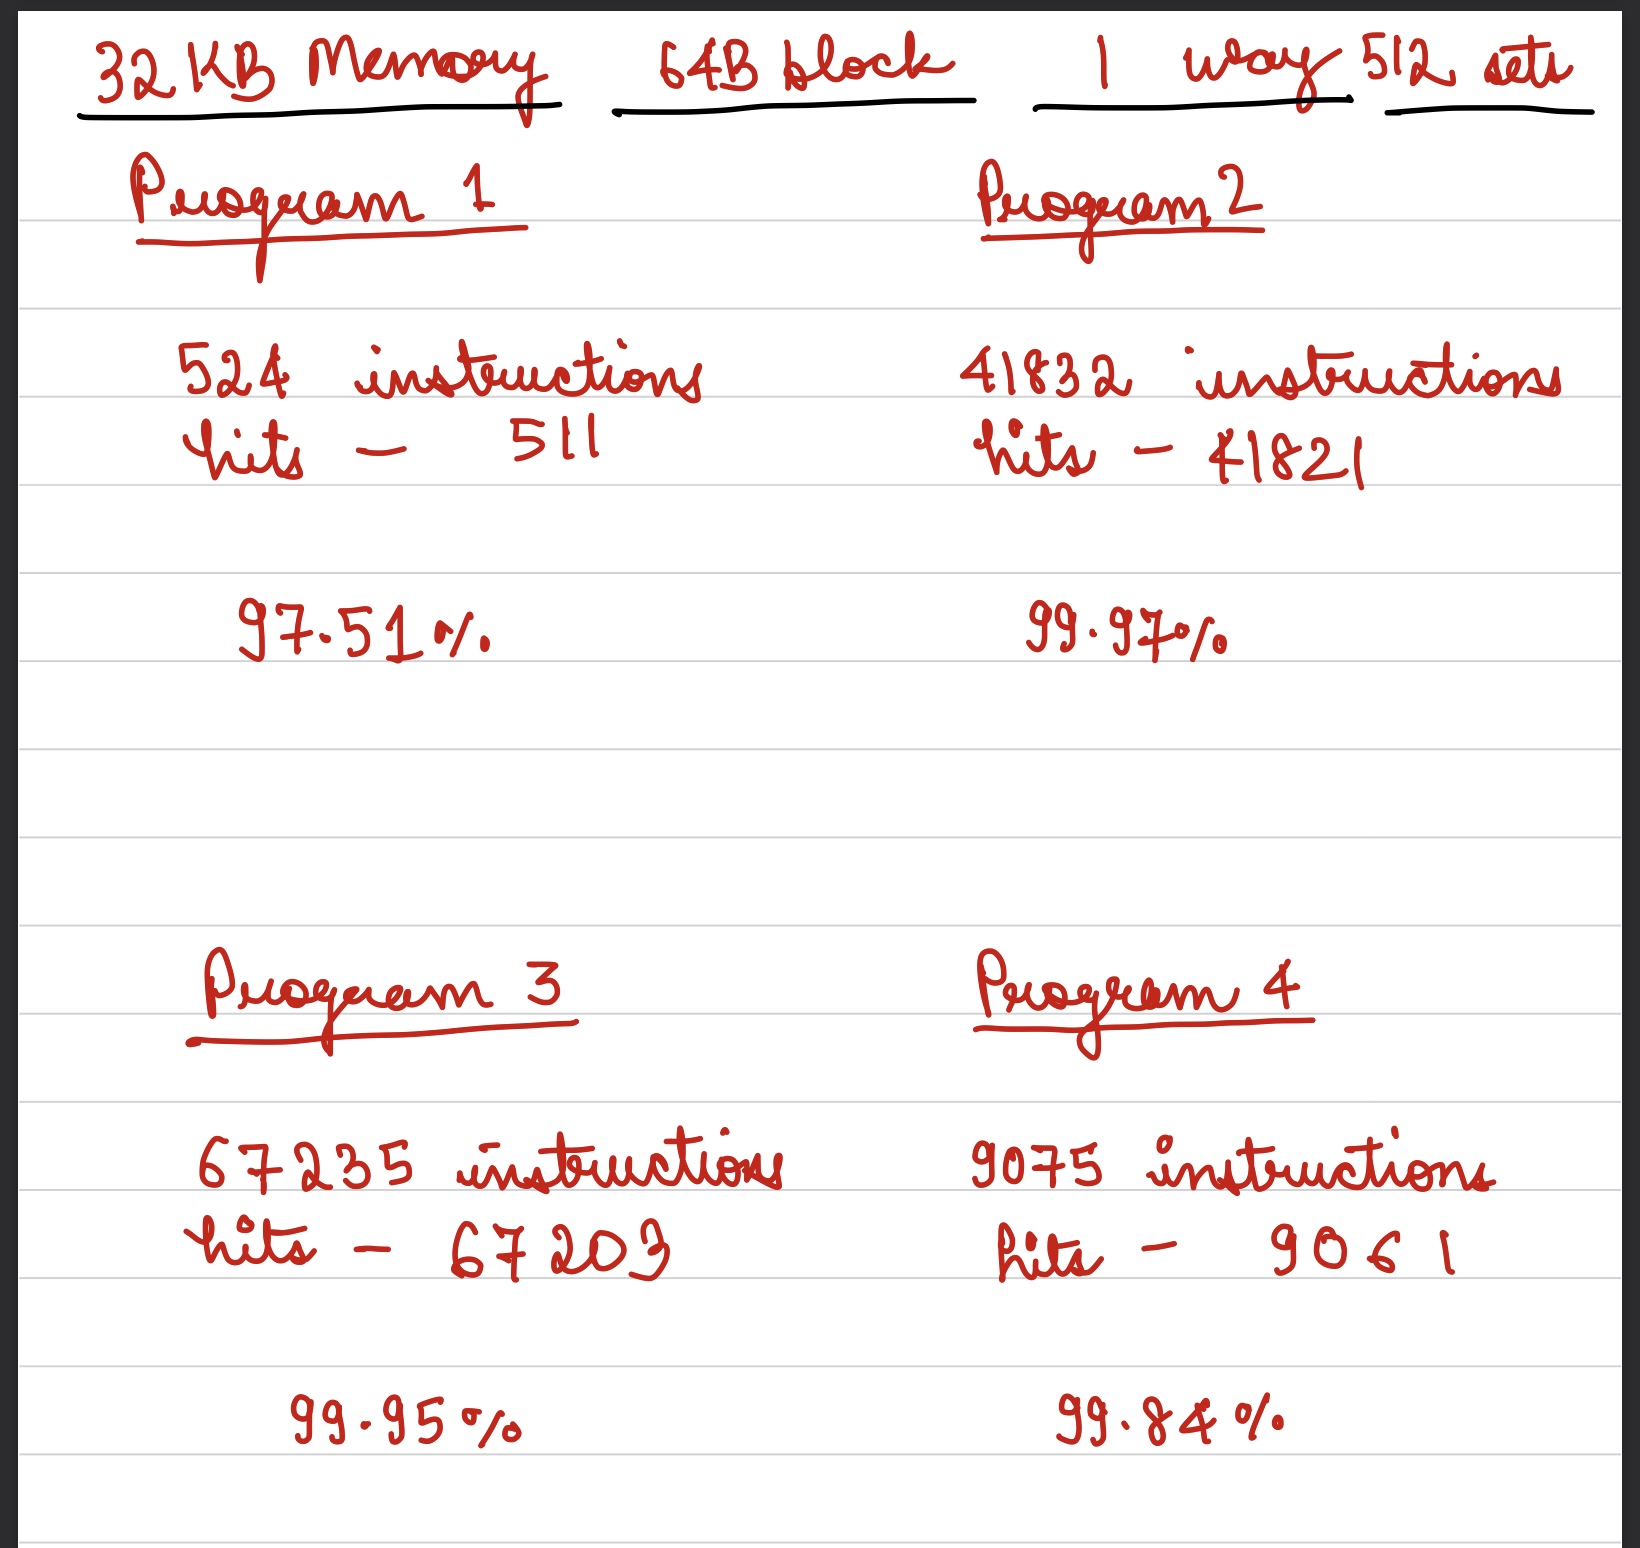 32 KB Memory 64B block 1 way 512 sets
Program 1
524 instructions
hits - 511
97.51%
Program 2
41832 instructions
hits - 41821
99.97%
Program 3
67235 instructions
hits - 67203
99.95%
Program 4
9075 instructions
hits - 9061
99.84%